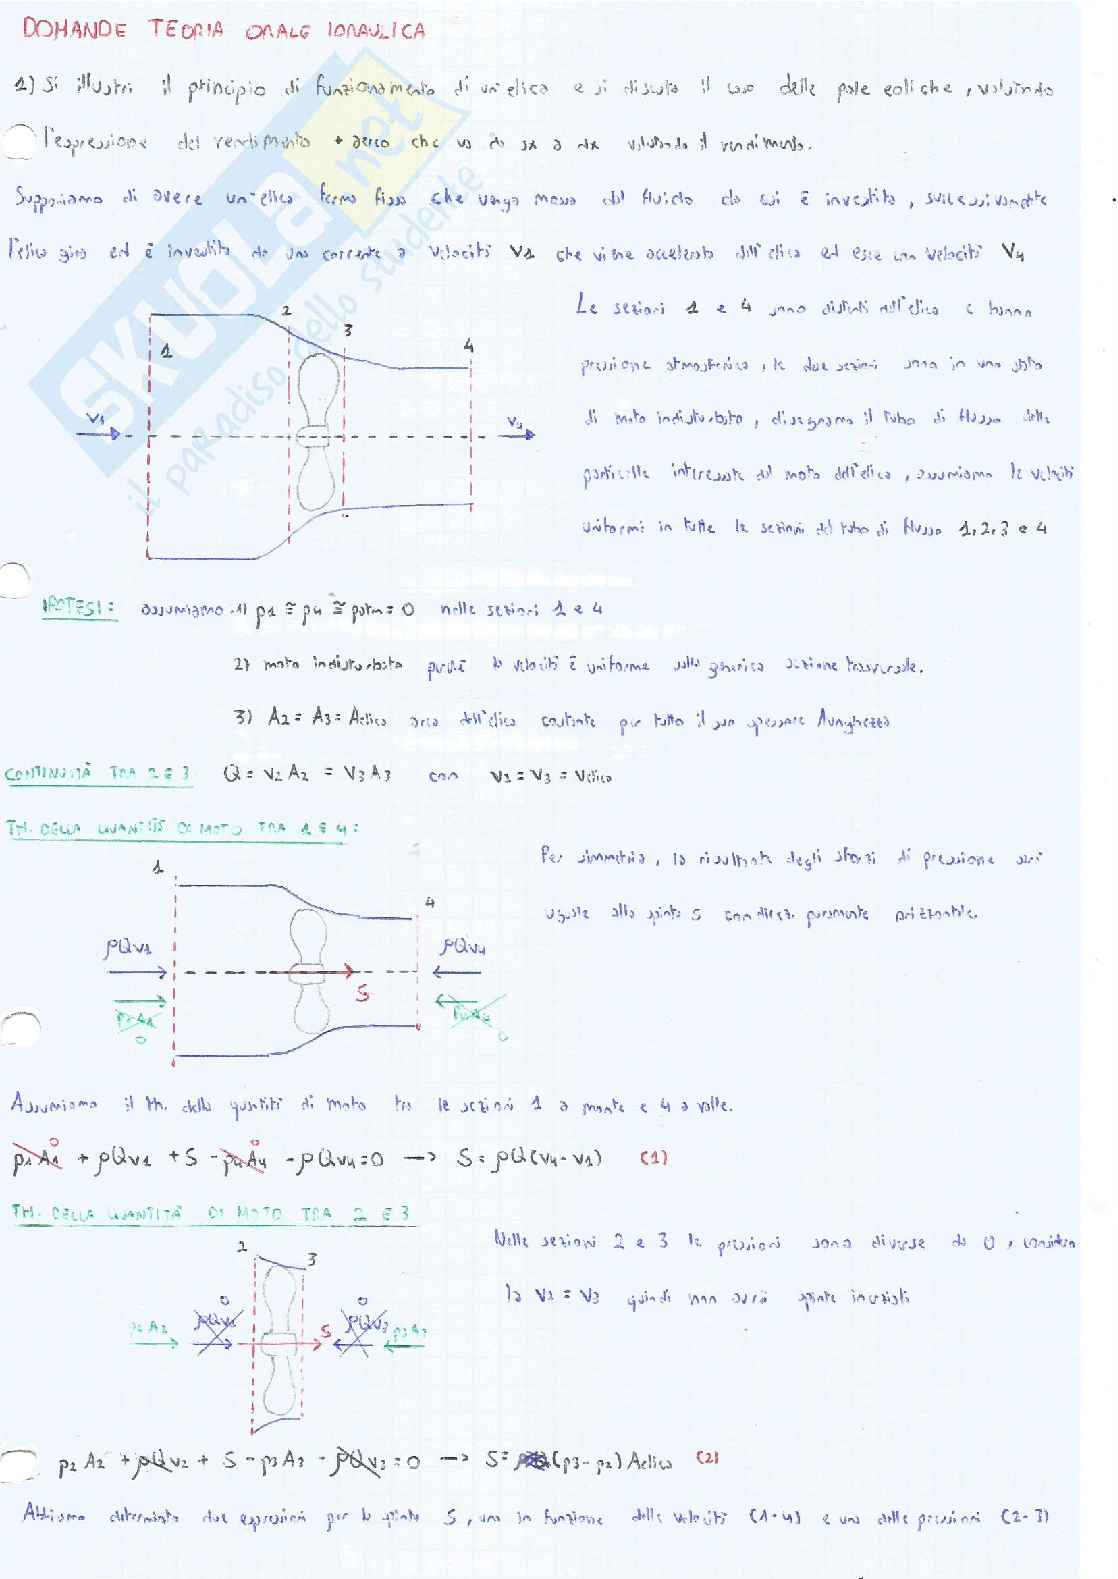 DOMANDE TEORIA ORALE IDRAULICA
1) Si illustri il principio di funzionamento di un'elica e si discuta il caso delle pale eoliche, valutando
l'espressione del rendimento + aereo che va da sx a dx valutando il rendimento.
Supponiamo di avere un'elica ferma fissa che venga mossa dal fluido da cui è investita, successivamente
l'elica gira ed è investita da una corrente a velocità V1 che viene accelerata dall'elica ed esce con velocità V4
Le sezioni 1 e 4 sono distanti dall'elica e hanno
pressione atmosferica, le due sezioni sono in uno stato
di moto indisturbato, disegnamo il tubo di flusso delle
particelle interessate dal moto dell'elica, assumiamo le velocità
uniformi in tutte le sezioni del tubo di flusso 1,2,3 e 4
1
2
3
4
V1
V4
SKUOLA.net
il paradiso dello studente
IPOTESI: assumiamo 1) p1 ≅ p4 ≅ patm = 0 nelle sezioni 1 e 4
2) moto indisturbato perché la velocità è uniforme sulla generica sezione trasversale.
3) A2 = A3 = Aelica area dell'elica costante per tutto il suo spessore lunghezza
CONTINUITÀ TRA 2 E 3 Q = V2 A2 = V3 A3 con V2 = V3 = Velica
TH. DELLA QUANTITÀ DI MOTO TRA 1 E 4:
Per simmetria, la risultante degli sforzi di pressione sarà
uguale alla spinta S con direz. puramente orizzontale.
1
4
ρQv1
ρQv4
S
p1A1
0
p4A4
0
Assumiamo il th. della quantità di moto tra le sezioni 1 a monte e 4 a valle.
p1A1 0 + ρQv1 + S - p4A4 0 - ρQv4 = 0 → S = ρQ(v4 - v1) (1)
TH. DELLA QUANTITÀ DI MOTO TRA 2 E 3
Nelle sezioni 2 e 3 le pressioni sono diverse da 0, considero
la v2 = v3 quindi non avrò spinte inerziali
2
3
p2A2
ρQv2
0
S
ρQv3
0
p3A3
p2A2 + ρQv2 + S - p3A3 - ρQv3 = 0 → S = (p3 - p2) Aelica (2)
Abbiamo determinato due espressioni per la spinta S, una in funzione delle velocità (1-4) e una delle pressioni (2-3)